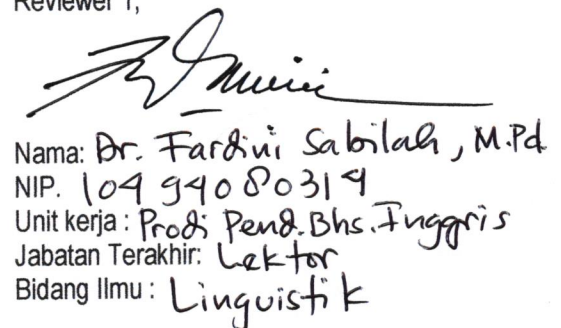 Reviewer 1,
Nama: Dr. Fardini Sabilah, M.Pd
NIP. 104 94080319
Unit kerja : Prodi Pend. Bhs. Inggris
Jabatan Terakhir: Lektor
Bidang Ilmu : Linguistik